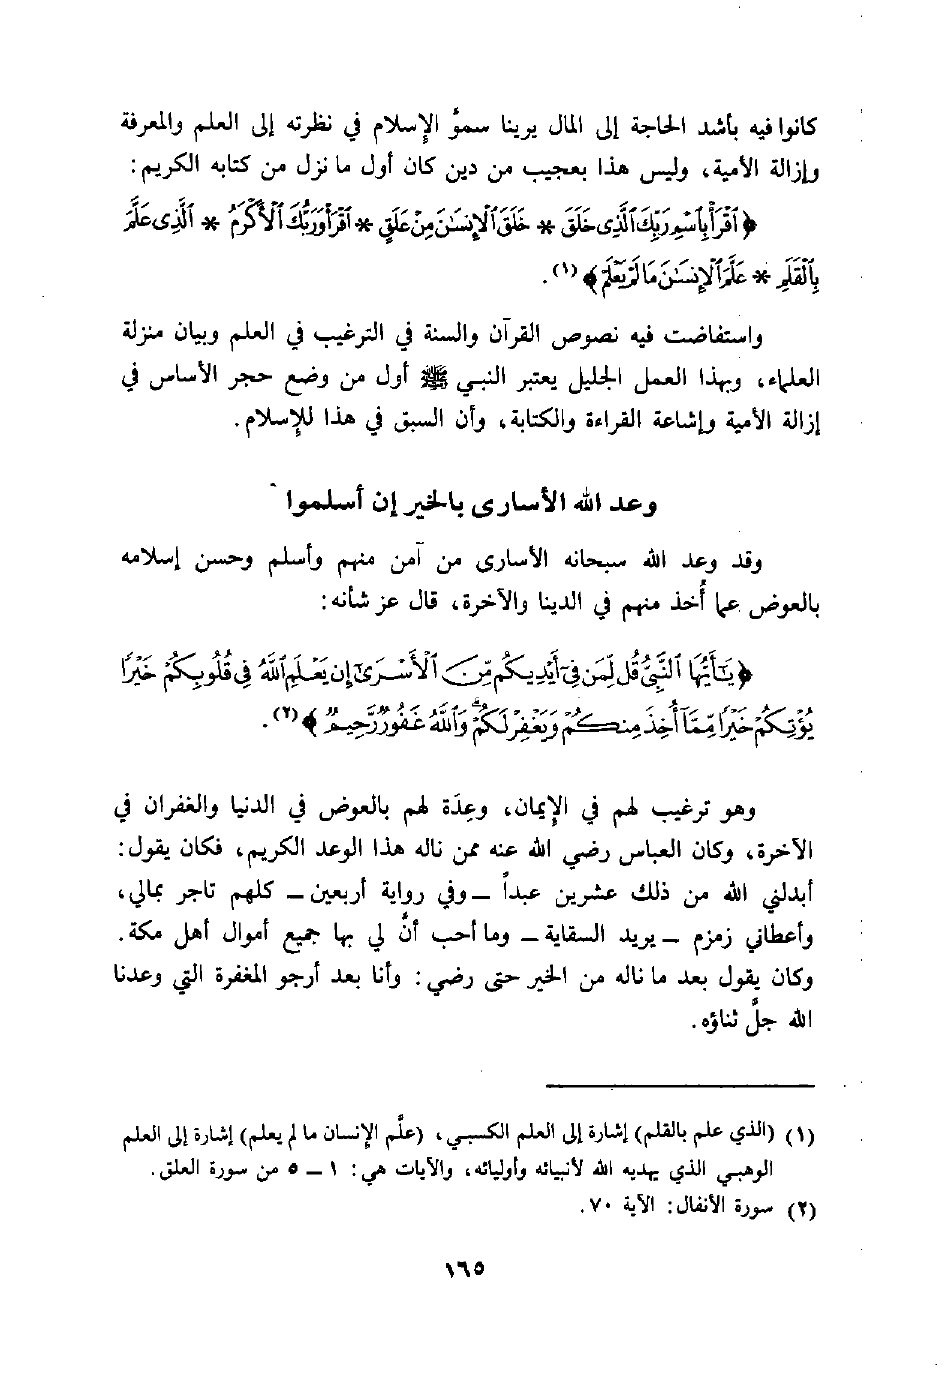 كانوا فيه بأشد الحاجة إلى المال يرينا سموَّ الإسلام في نظرته إلى العلم والمعرفة
وإزالة الأمية، وليس هذا بعجيب من دين كان أول ما نزل من كتابه الكريم:
﴿ ٱقْرَأْ بِٱسْمِ رَبِّكَ ٱلَّذِى خَلَقَ * خَلَقَ ٱلْإِنسَـٰنَ مِنْ عَلَقٍ * ٱقْرَأْ وَرَبُّكَ ٱلْأَكْرَمُ * ٱلَّذِى عَلَّمَ
بِٱلْقَلَمِ * عَلَّمَ ٱلْإِنسَـٰنَ مَا لَمْ يَعْلَمْ ﴾ (١).
واستفاضت فيه نصوص القرآن والسنة في الترغيب في العلم وبيان منزلة
العلماء، وبهذا العمل الجليل يعتبر النبي ﷺ أول من وضع حجر الأساس في
إزالة الأمية وإشاعة القراءة والكتابة، وأن السبق في هذا للإسلام.
وعد الله الأسارى بالخير إن أسلموا
وقد وعد الله سبحانه الأسارى من آمن منهم وأسلم وحسن إسلامه
بالعوض عما أُخذ منهم في الدينا والآخرة، قال عز شأنه:
﴿ يَـٰٓأَيُّهَا ٱلنَّبِىُّ قُل لِّمَن فِىٓ أَيْدِيكُم مِّنَ ٱلْأَسْرَىٰٓ إِن يَعْلَمِ ٱللَّهُ فِى قُلُوبِكُمْ خَيْرًا
يُؤْتِكُمْ خَيْرًا مِّمَّآ أُخِذَ مِنكُمْ وَيَغْفِرْ لَكُمْ ۗ وَٱللَّهُ غَفُورٌ رَّحِيمٌ ﴾ (٢).
وهو ترغيب لهم في الإيمان، وعِدَة لهم بالعوض في الدنيا والغفران في
الآخرة، وكان العباس رضي الله عنه ممن ناله هذا الوعد الكريم، فكان يقول:
أبدلني الله من ذلك عشرين عبداً ــ وفي رواية أربعين ــ كلهم تاجر بمالي،
وأعطاني زمزم ــ يريد السقاية ــ وما أحب أنَّ لي بها جميع أموال أهل مكة.
وكان يقول بعد ما ناله من الخير حتى رضي: وأنا بعد أرجو المغفرة التي وعدنا
الله جلَّ ثناؤه.
(١) (الذي علم بالقلم) إشارة إلى العلم الكسبي، (علَّم الإنسان ما لم يعلم) إشارة إلى العلم
الوهبي الذي يهديه الله لأنبيائه وأوليائه، والآيات هي: ١ ــ ٥ من سورة العلق.
(٢) سورة الأنفال: الآية ٧٠.
١٦٥